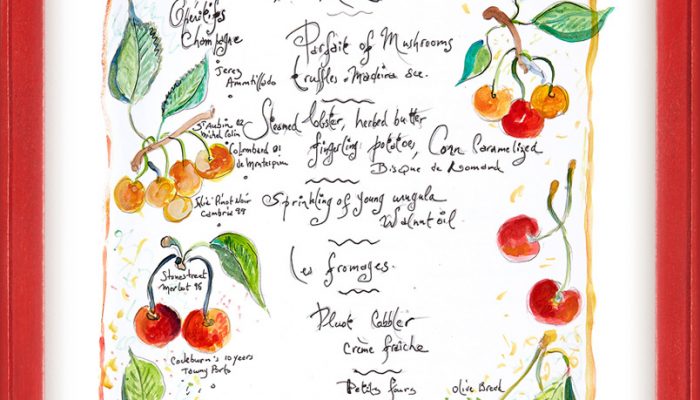 Apéritifs
Champagne
Jerez
Ammtillado
Parfait of Mushrooms
truffles. Madeira sce.
St Aubin 02
Michel Colin
Colombard 01
de Montespin
Steamed lobster, herbed butter
fingerling potatoe, Corn Caramelized
Bisque de Homard
Pinot Noir
Cambria 99
Sprinkling of young arugula
Walnut oil
Les fromages.
Stonestreet
Merlot 96
Pluot Cobbler
Crème fraîche
Cockburn's 10 years
Tawny Porto
Petits fours
Olive Bread